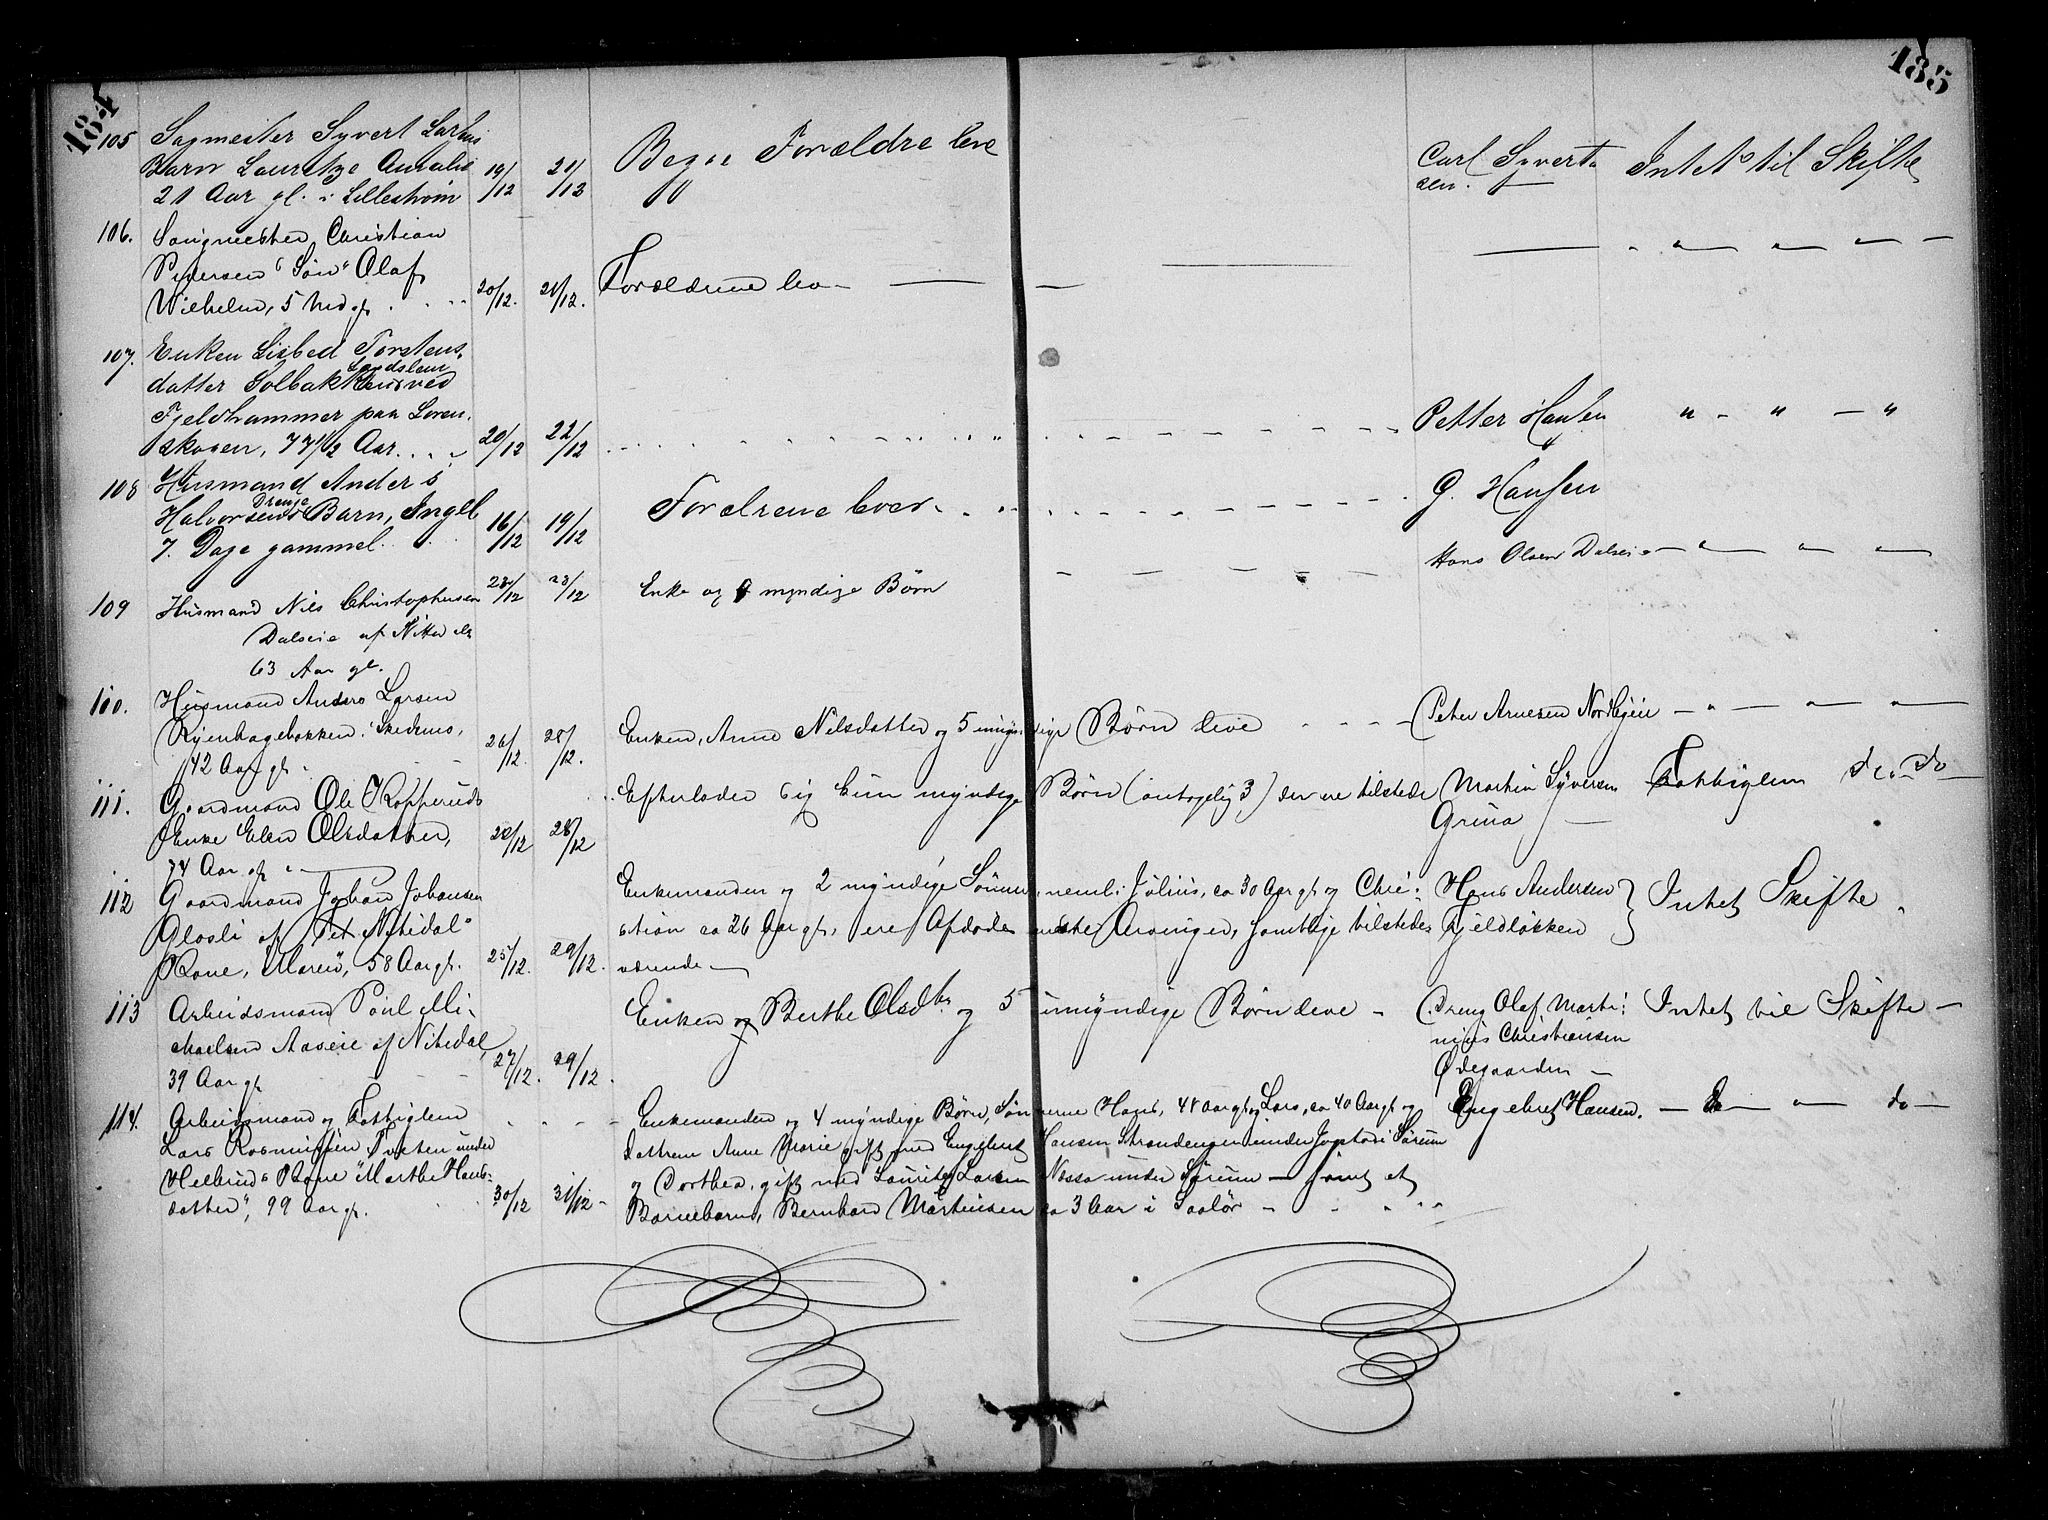 184
185
105 Sagmester Syvert Larsens
Barn Lauritze Auralie 19/12 21/12 Begge Forældre leve Carl Syvert- Intet til Skifte
21 Aar gl. i Lillestrøm sen.
106. Saugmester Christian
Pedersens "Søn" Olaf
Wilhelm, 5 Md gl. 20/12. 21/12. Forældrene leve
107. Enken Lisbed Torstens-
datter Solbakken ved
Fjeldhammer paa Loren-
skogen, 77 1/2 Aar. 20/12 22/12 Petter Hansen " - " - "
108 Husmand Anders
Halvorsens Drenge Barn, Ingel 16/12 19/12 Forælrene lever. G. Hansen
7. Dage gammel
109 Husmand Nils Christophersen 23/12 Enke og myndige Børn Hans Olsen Dalseie
Dalseie af Nittedal
63 Aar gl.
110. Husmand Anders Larsen
Ryenhagebakken i Skedsmo, 26/12. 28/12. Enken, Anne Nilsdatter og 5 umyndige Børn leve Peter Arnesen Nordbyeie
42 Aar gl.
111. Gaardmand Ole Kopperuds Efterlader sig kun myndige Børn (antagelig 3) der ere tilstede Martin Syversen Fattiglem do do
Enke Elen Olsdatter, 28/12 Grina
74 Aar gl.
112 Gaardmand Johan Johansen Enkemanden og 2 myndige Sønner, neml: Julius, ca 30 Aar gl. og Chri- Hans Andersen Intet Skifte
Glosli af "Nitedal" stian ca 26 Aar gl., ere Afdødes eneste Arvinger, samtlige tilstede- Fjeldløkken
Kone, Maren, 58 Aar gl. 25/12. 29/12. værende
113 Arbeidsmand Paul Mi- Enken og Berthe Olsdtr. og 5 umyndige Børn leve Dreng Olaf Marti- Intet til Skifte
kaelsen Aaseie af Nitedal, nius Christiansen
39 Aar gl. 27/12. 29/12. Ødegaarden
114. Arbeidsmand og Fattiglem Enkemanden og 4 myndige Børn, Sønnerne Hans, 48 Aar gl. og Lars, ca 40 Aar gl. og Engebret Hansen. do do
Lars Rasmussen under dattrene Anne Marie gift med Engebret Hansen Strandengen under Jogstad i Sørum
Hellerud's Kone "Marthe Hans- og Dorthea, gift med Lauritz Larsen Nessa under Sørum - samt et
datter", 99 Aar gl. 30/12 31/12 Barnebarn, Bernhard Martinsen ca 3 Aar i Saalør